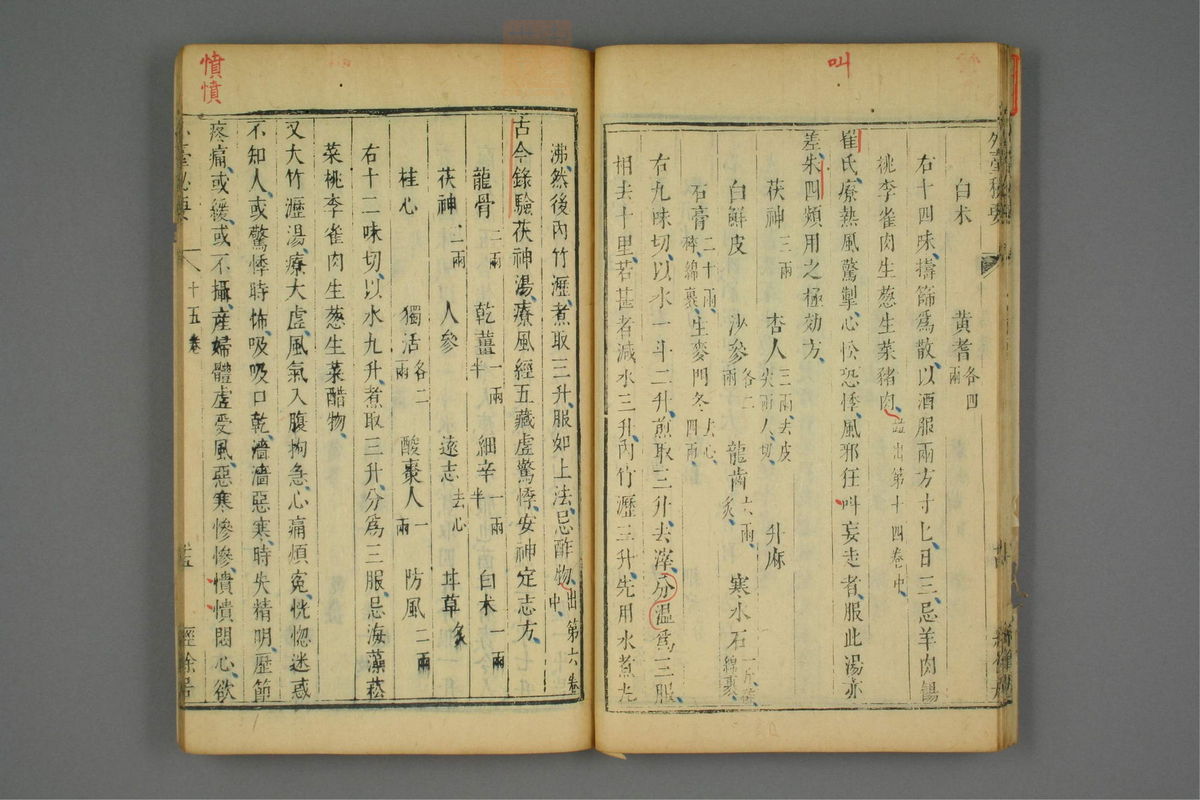 叫
外臺秘要
白朮　黃耆各四兩
右十四味擣篩爲散以酒服兩方寸匕日三忌羊肉餳
桃李雀肉生葱生菜豬肉並出第十四卷中
崔氏療熱風驚掣心忪恐悸風邪狂叫妄走者服此湯亦
差朱四頻用之極効方
茯神三兩　杏人三兩去皮尖兩人切　升麻
白鮮皮　沙參各二兩　龍齒六兩炙　寒水石一斤碎綿裹
石膏二十兩碎綿裹　生麥門冬去心四兩
右九味切以水一斗二升煎取三升去滓分溫爲三服
相去十里若甚者減水三升內竹瀝三升先用水煮九
沸然後內竹瀝煮取三升服如上法忌酢物出第六卷中
古今錄驗茯神湯療風經五藏虛驚悸安神定志方
龍骨二兩　乾薑一兩半　細辛一兩半　白朮一兩
茯神二兩　人參　遠志去心　甘草炙
桂心　獨活各二兩　酸棗人一兩　防風二兩
右十二味切以水九升煮取三升分爲三服忌海藻菘
菜桃李雀肉生葱生菜醋物
又大竹瀝湯療大虛風氣入腹拘急心痛煩冤恍惚迷惑
不知人或驚悸時怖吸吸口乾濇濇惡寒時失精明歷節
疼痛或緩或不攝產婦體虛受風惡寒慘慘憒憒悶心欲
憒憒
十五卷
經餘居